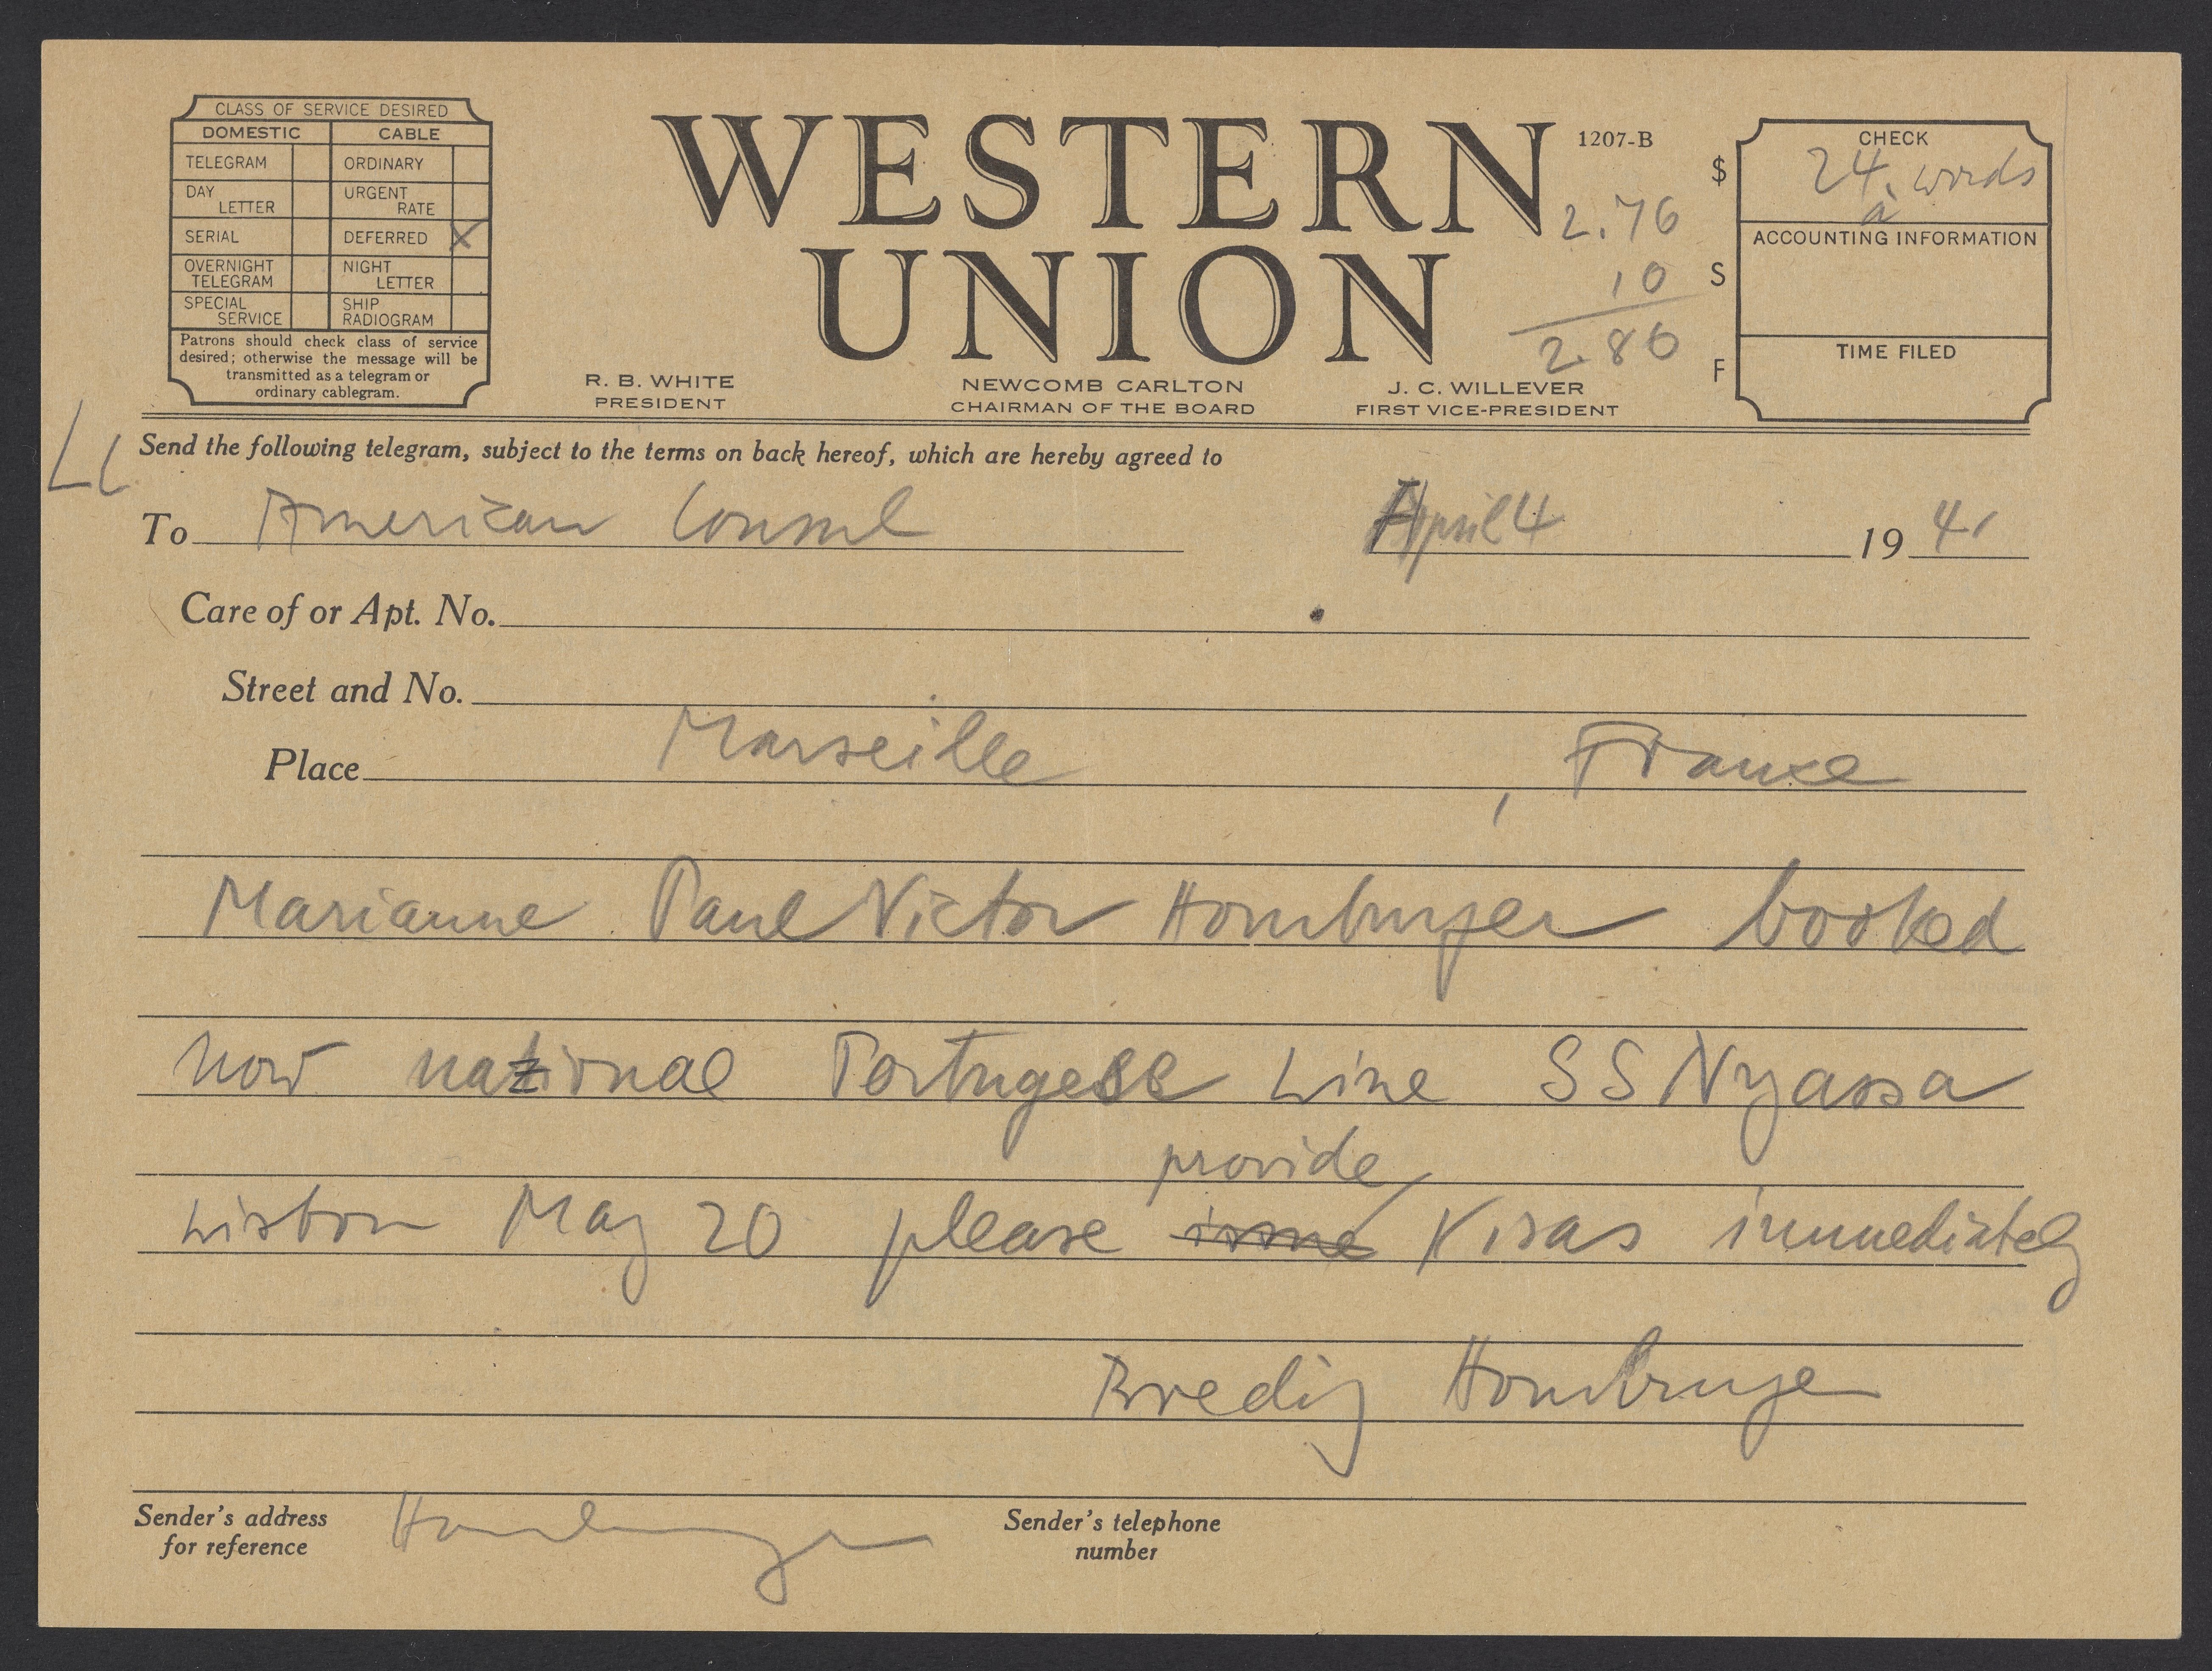 CLASS OF SERVICE DESIRED
DOMESTIC CABLE
TELEGRAM ORDINARY
DAY LETTER URGENT RATE
SERIAL DEFERRED X
OVERNIGHT TELEGRAM NIGHT LETTER
SPECIAL SERVICE SHIP RADIOGRAM
Patrons should check class of service
desired; otherwise the message will be
transmitted as a telegram or
ordinary cablegram.
WESTERN
UNION
1207-B
2.76
10
2.86
R. B. WHITE
PRESIDENT
NEWCOMB CARLTON
CHAIRMAN OF THE BOARD
J. C. WILLEVER
FIRST VICE-PRESIDENT
$
S
F
CHECK
24 words
ACCOUNTING INFORMATION
TIME FILED
Send the following telegram, subject to the terms on back hereof, which are hereby agreed to
To American Consul April 4 1941
Care of or Apt. No.
Street and No.
Place Marseille, France
Marianne Paul Victor Homburger booked
now national Portugese Line SS Nyassa
provide
Lisbon May 20 please issue Visas immediately
Bredig Homburger
Sender's address
for reference
Homburger
Sender's telephone
number